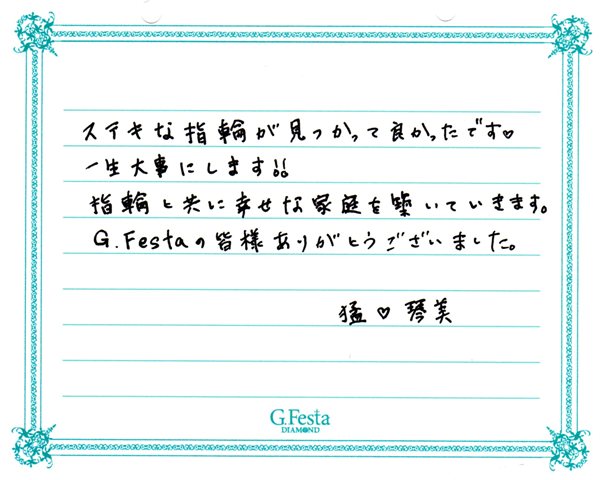 ステキな指輪が見つかって良かったです♡
一生大事にします!!
指輪と共に幸せな家庭を築いていきます。
G.Festaの皆様ありがとうございました。
猛♡琴美
G.Festa
DIAMOND